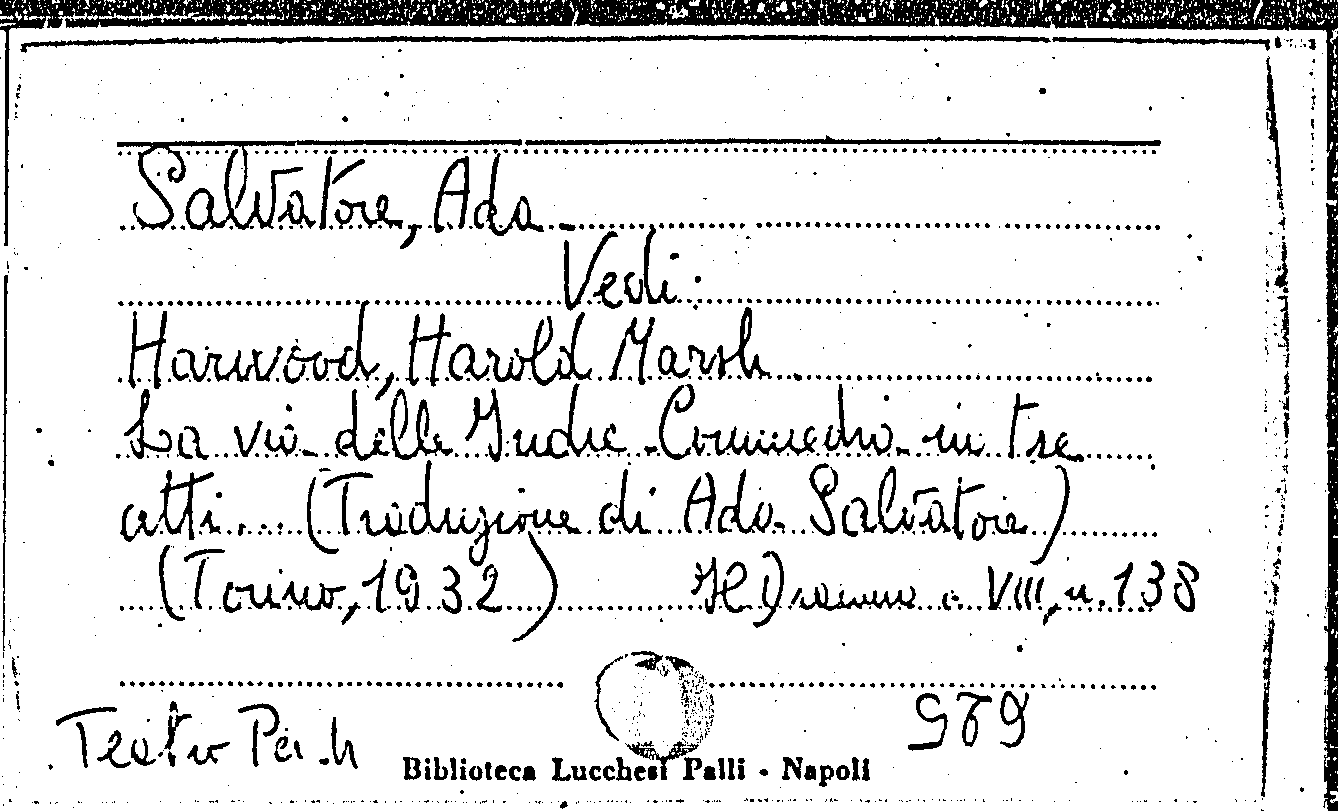 Salvatore, Ada
Vedi:
Harwood, Harold Marsh
La via delle Indie. Commedia in tre
atti... (Traduzione di Ada Salvatore)
(Torino, 1932) Il Dramma a. VIII, n. 138
Teatro Per.
Biblioteca Lucchesi Palli - Napoli